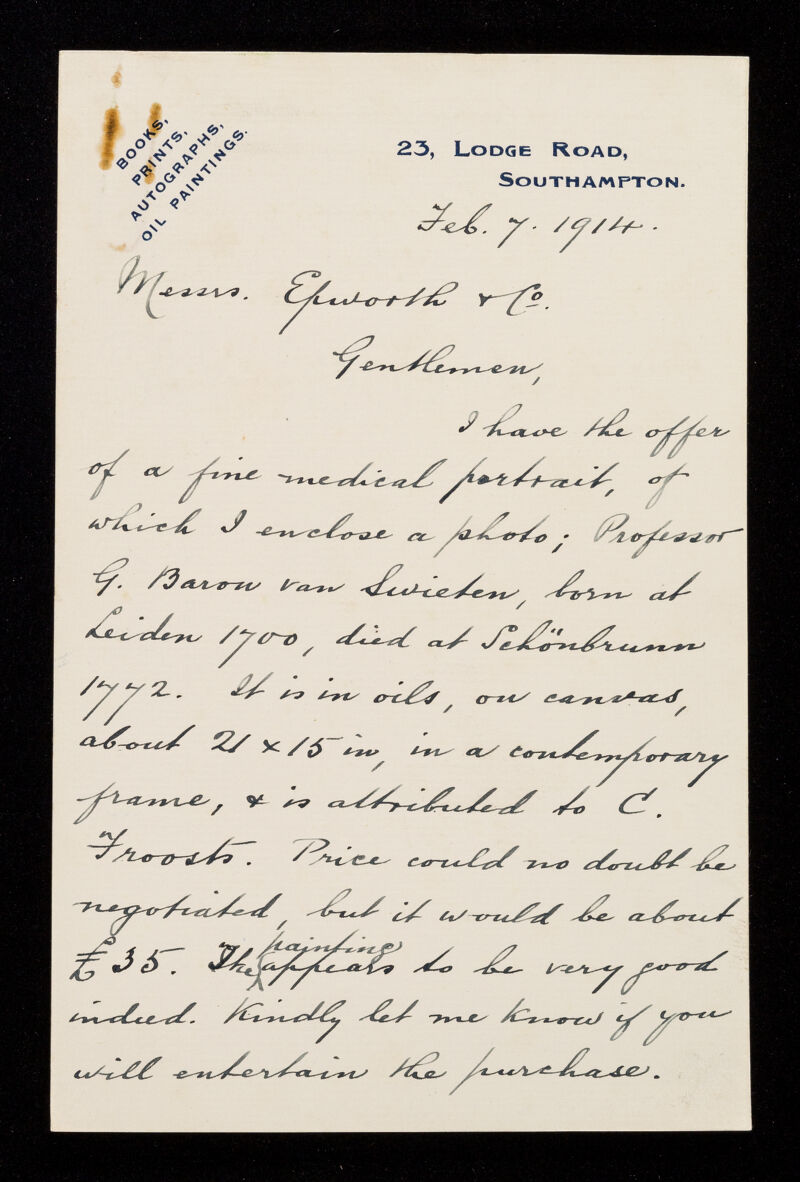 BOOKS,
PRINTS,
AUTOGRAPHS,
OIL PAINTINGS.
23, LODGE ROAD,
SOUTHAMPTON.
Feb. 7. 1914.
Messrs. Epworth & Co.
Gentlemen,
I have the offer
of a fine medical portrait, of
which I enclose a photo; Professor
G. Baron van Swieten, born at
Leiden 1700, died at Schönbrunn
1772. It is in oils, on canvas,
about 21 x 15 in, in a contemporary
frame, & is attributed to C.
Troosts. Price could no doubt be
negotiated, but it would be about
£35. The painting appears to be very good
indeed. Kindly let me know if you
will entertain the purchase.